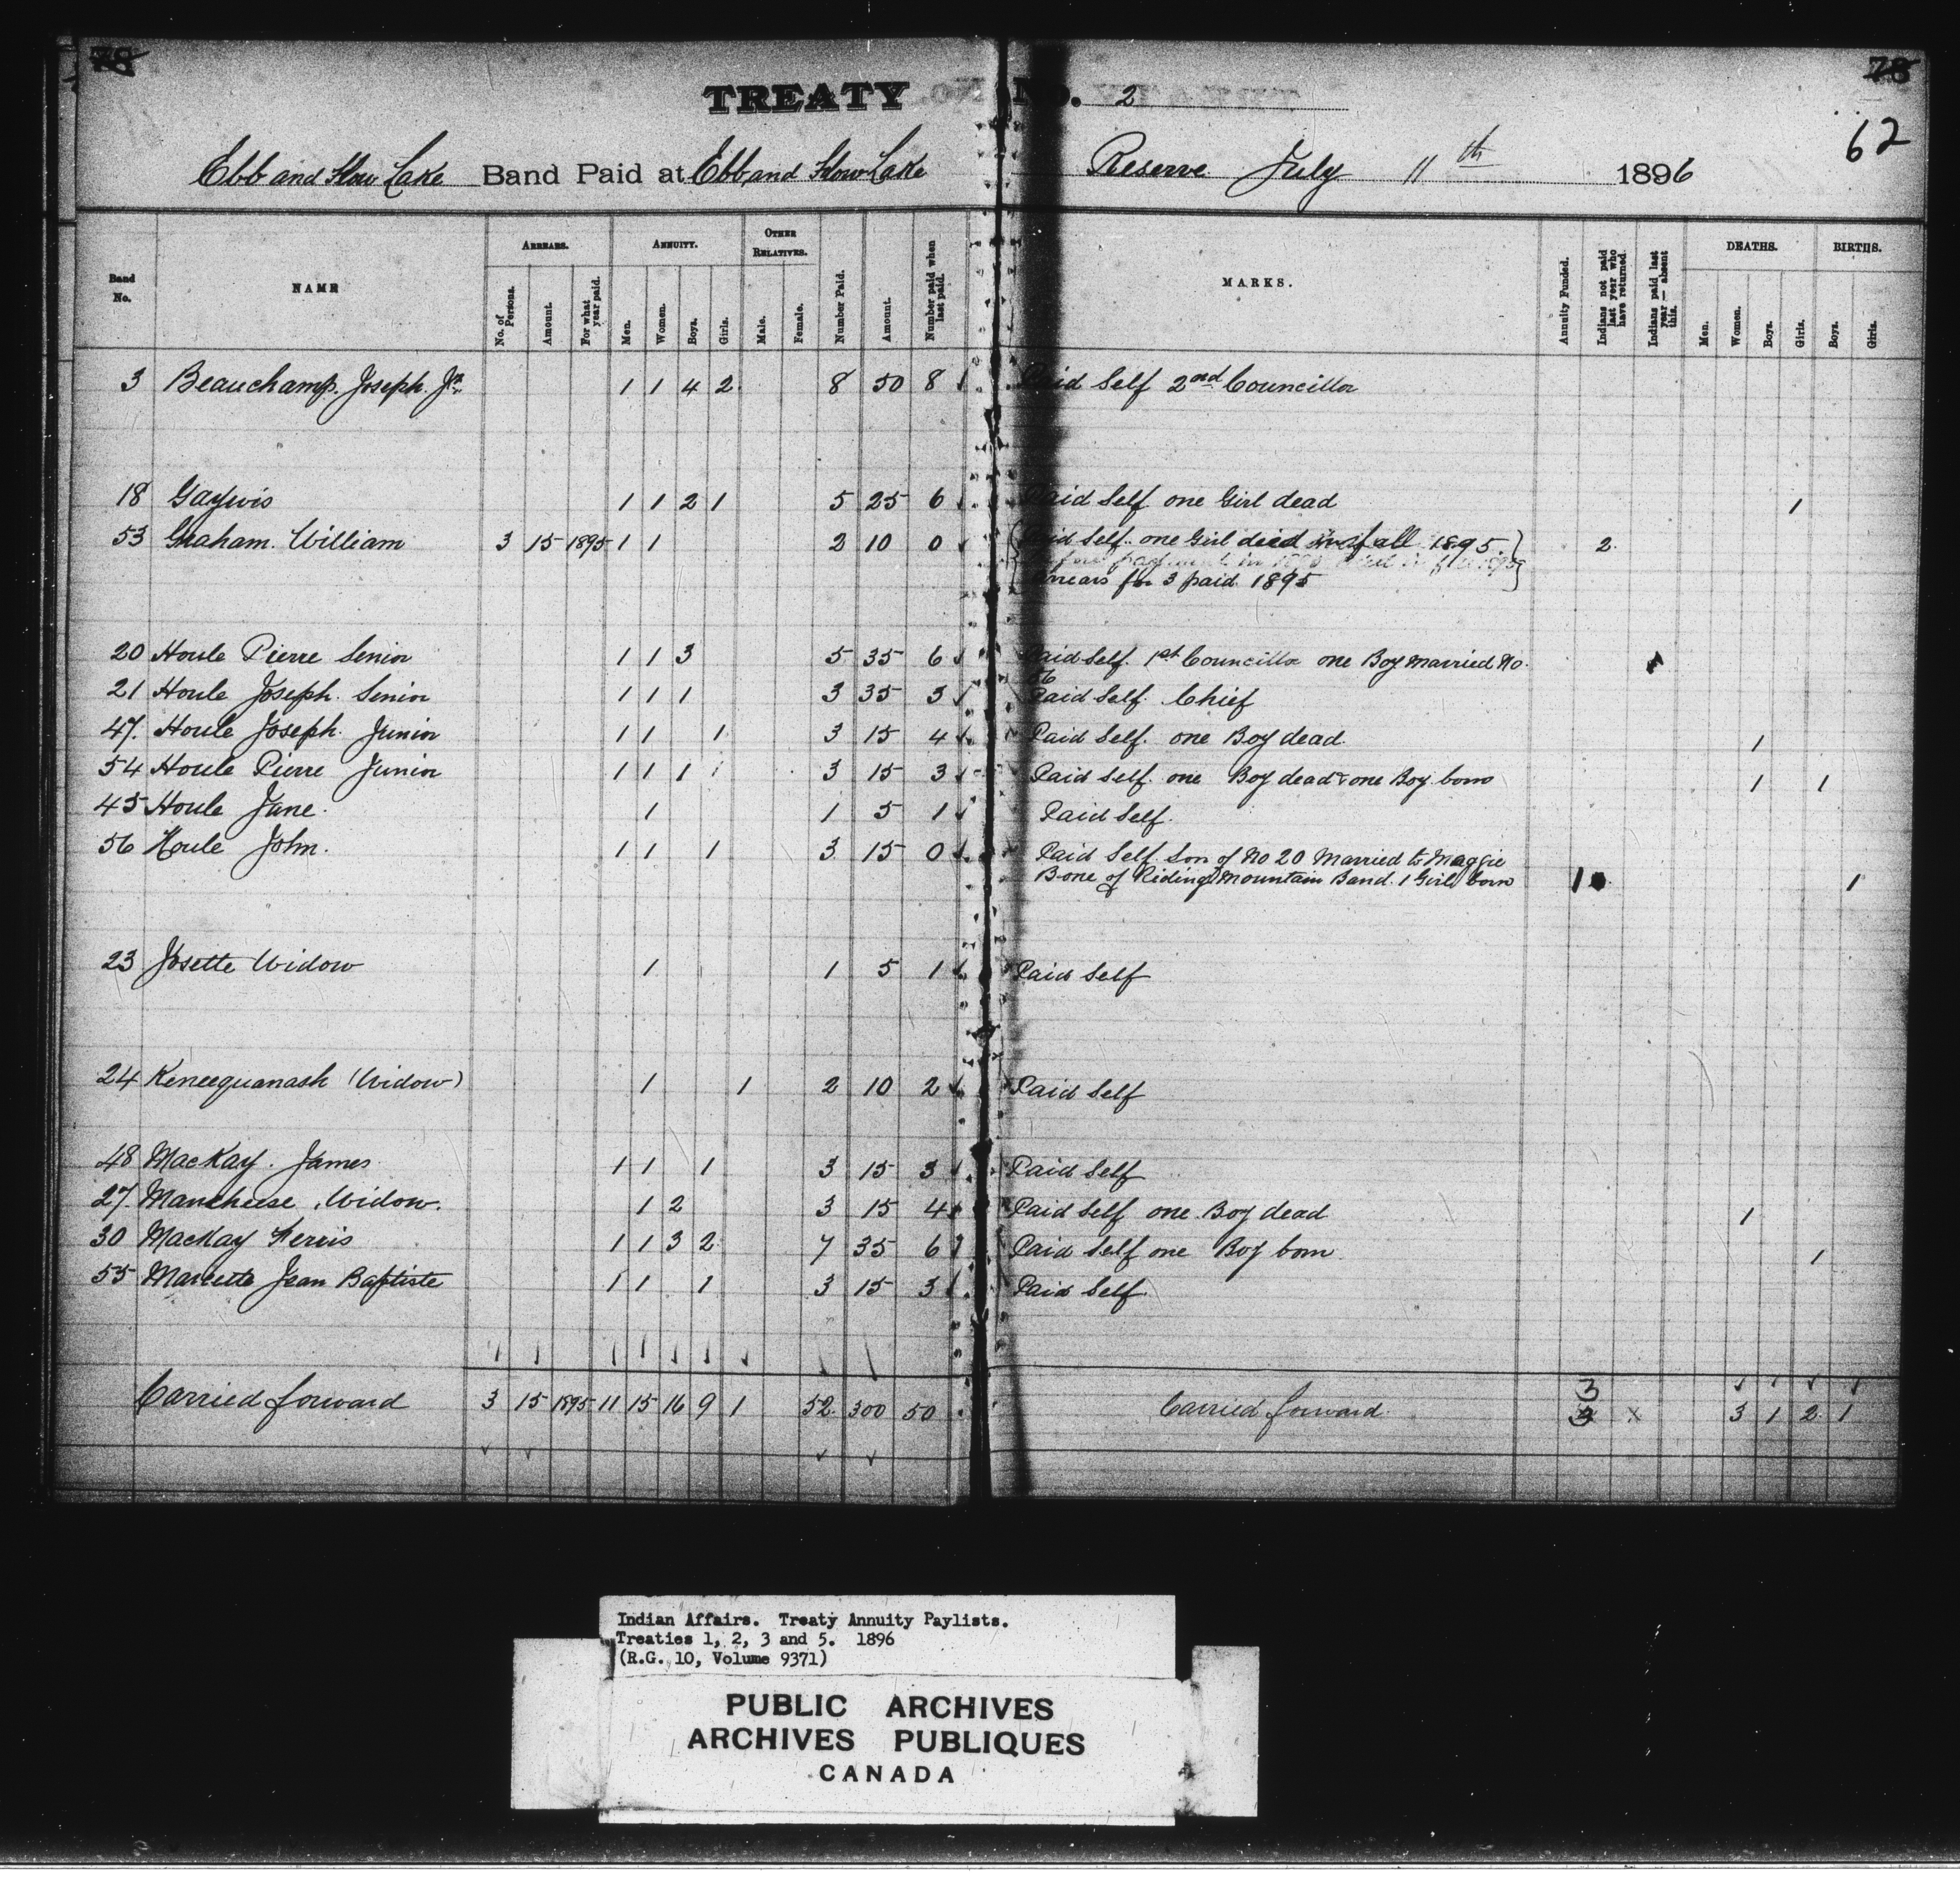 78 78
TREATY No. 2
62
Ebb and Flow Lake Band Paid at Ebb and Flow Lake Reserve July 11th 1896
Band No. NAME ARREARS. No. of Persons. Amount. For what year paid. ANNUITY. Men. Women. Boys. Girls. OTHER RELATIVES. Male. Female. Number Paid. Amount. Number paid when last paid. MARKS. Annuity Funded. Indians not paid last year who have returned. Indians paid last year — absent this. DEATHS. Men. Women. Boys. Girls. BIRTHS. Boys. Girls.
3 Beauchamp. Joseph. Jr. 1 1 4 2 8 50 8 Paid Self 2nd Councillor
18 Gaywis 1 1 2 1 5 25 6 Paid Self one Girl dead 1
53 Graham. William 3 15 1895 1 1 2 10 0 Paid Self. one Girl died in fall 1895. 2
arrears for 3 paid 1895
20 Houle Pierre Senior 1 1 3 5 35 6 Paid Self. 1st Councillor one Boy married No.
56
21 Houle Joseph. Senior 1 1 1 3 35 3 Paid Self. Chief
47. Houle Joseph. Junior 1 1 1 3 15 4 Paid Self. one Boy dead. 1
54 Houle Pierre Junior 1 1 1 3 15 3 Paid Self. one Boy dead & one Boy born 1 1
45 Houle Jane. 1 1 5 1 Paid Self.
56 Houle John. 1 1 1 3 15 0 Paid Self. Son of No 20 Married to Maggie
Bone of Riding Mountain Band. 1 Girl born 1 1
23 Josette Widow 1 1 5 1 Paid Self
24 Keneequanash (Widow) 1 1 2 10 2 Paid Self
48 MacKay. James 1 1 1 3 15 3 Paid Self
27. Mancheese, Widow. 1 2 3 15 4 Paid Self one Boy dead 1
30 MacKay Ferris 1 1 3 2 7 35 6 Paid Self one Boy born 1
55 Marcette Jean Baptiste 1 1 1 3 15 3 Paid Self.
Carried forward 3 15 1895 11 15 16 9 1 52 300 50 Carried forward. 3 x 3 1 2 1
Indian Affairs. Treaty Annuity Paylists.
Treaties 1, 2, 3 and 5. 1896
(R.G. 10, Volume 9371)
PUBLIC ARCHIVES
ARCHIVES PUBLIQUES
CANADA